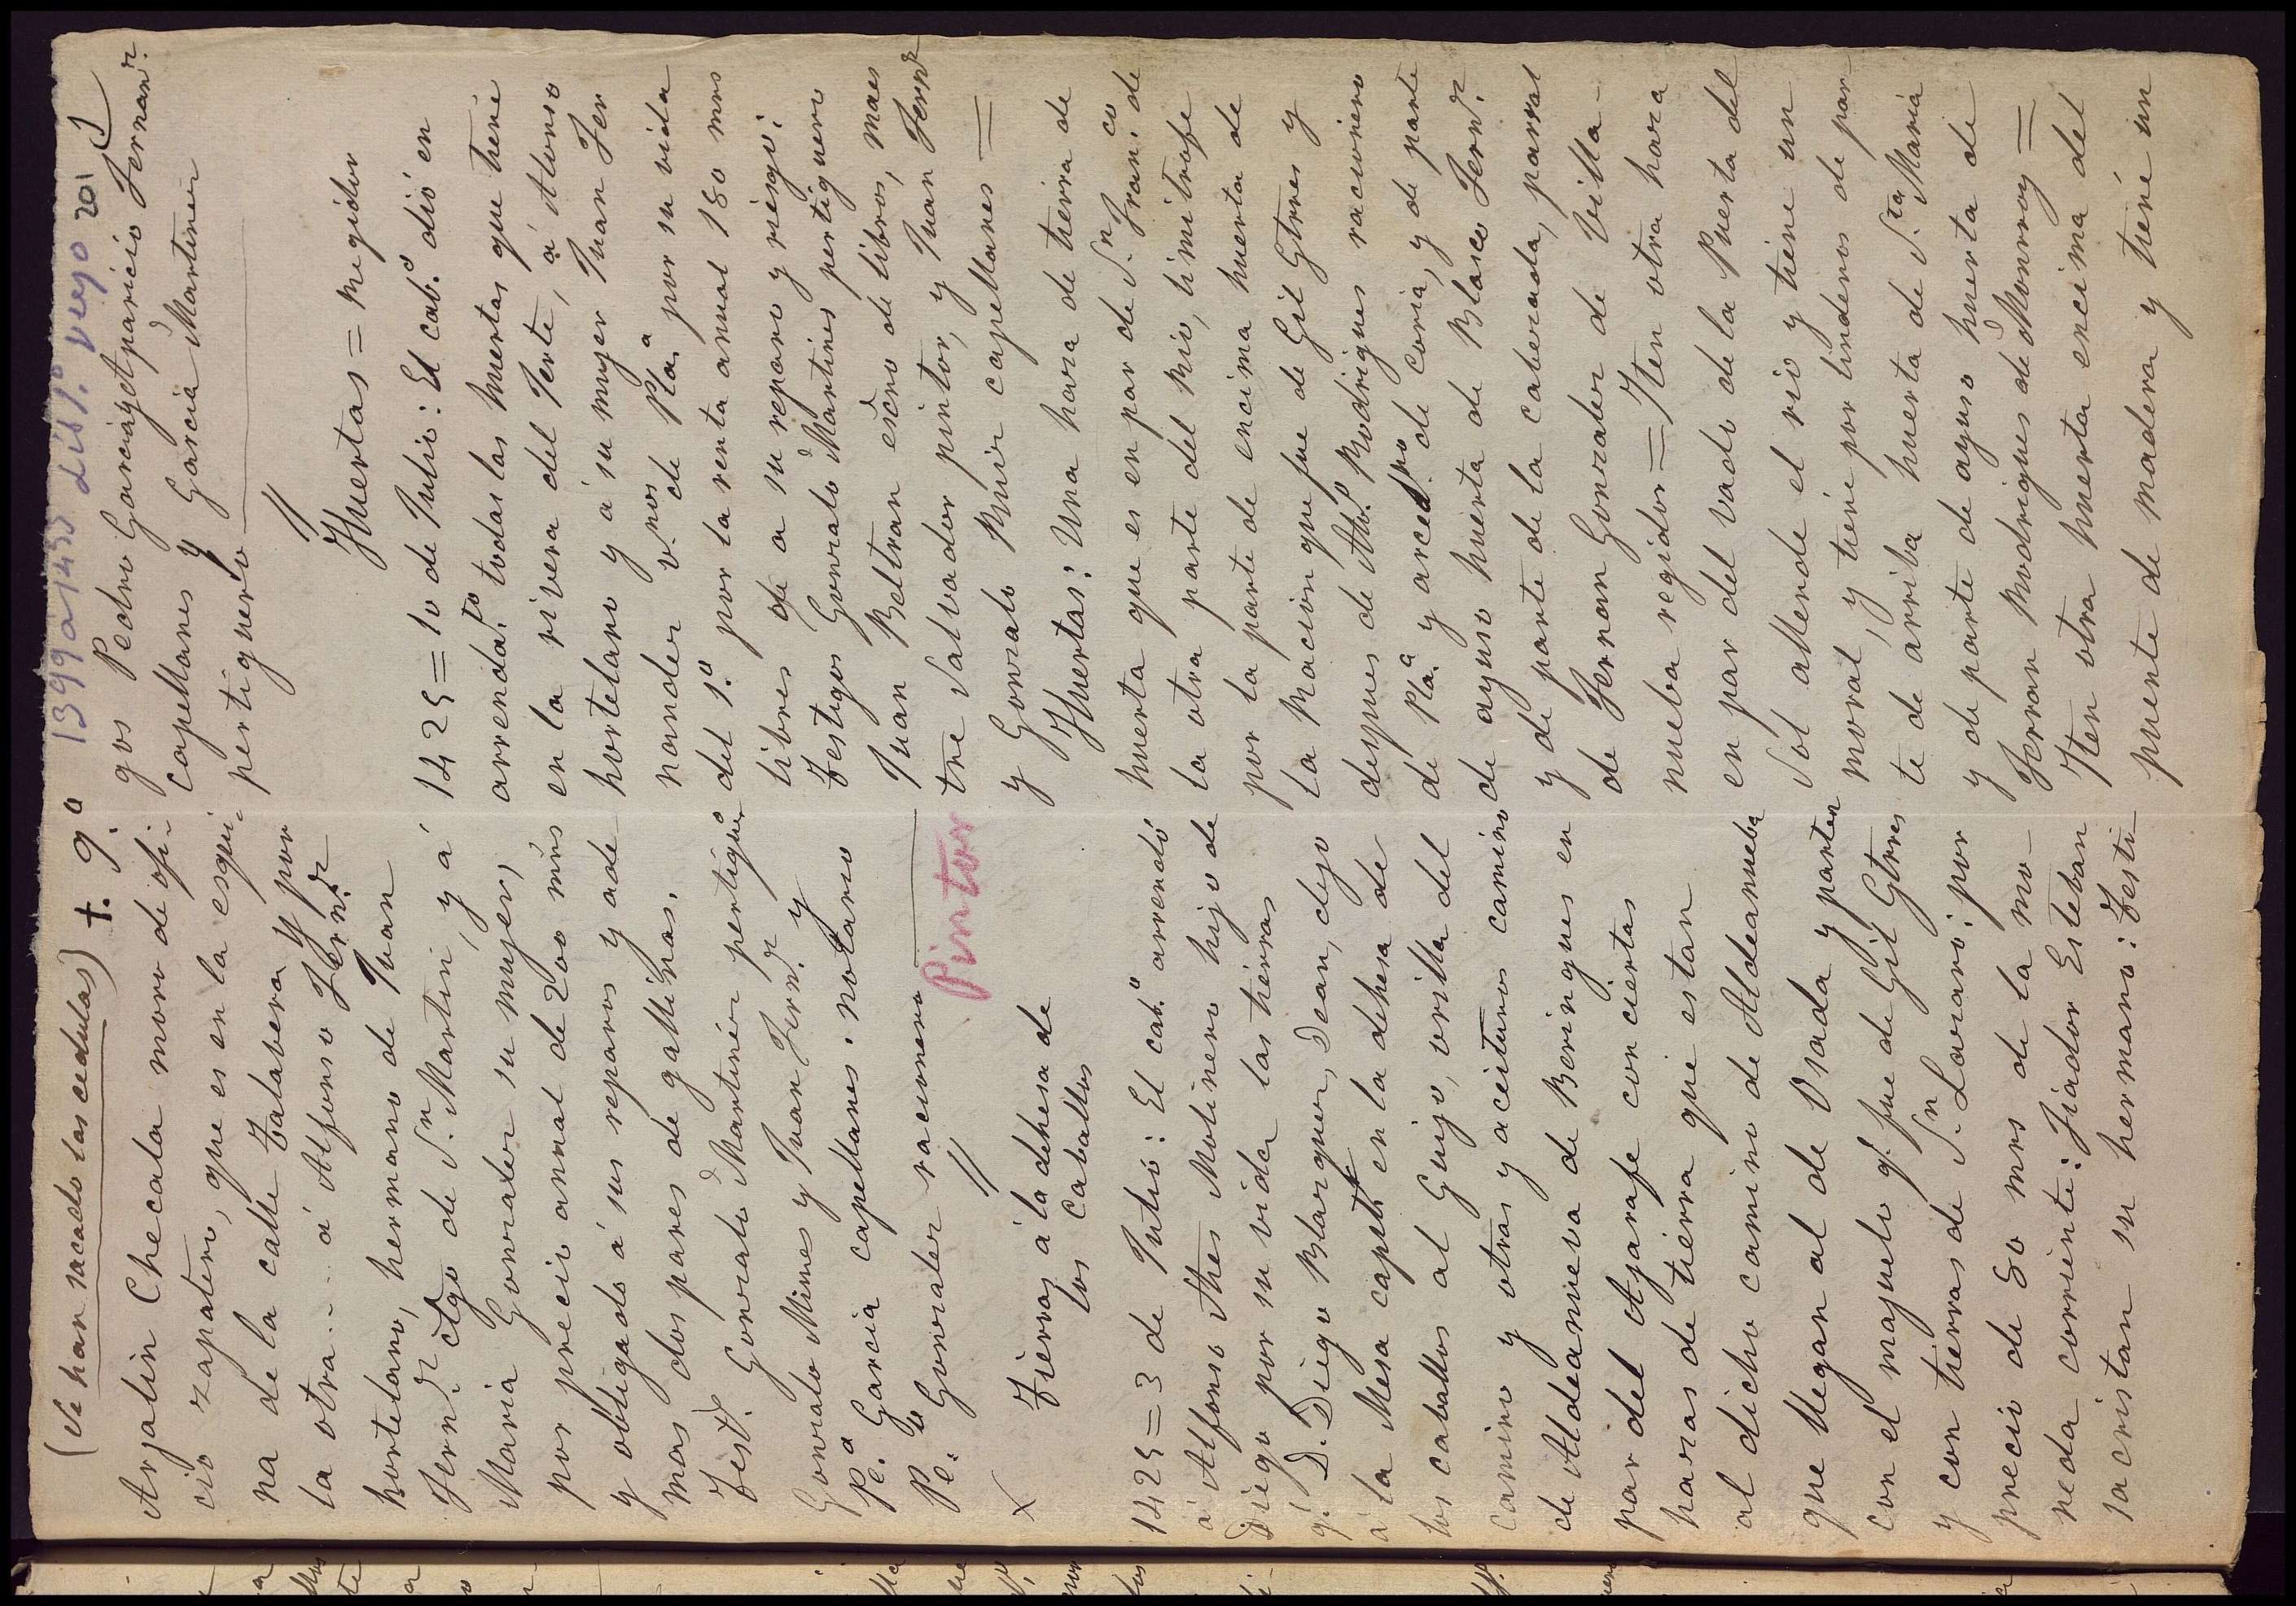 (Se han sacado las cedulas) +. 9.a
Arjalin Checala moro de ofi-
cio zapatero, que es en la esqui-
na de la calle Talabera y por
la otra... á Alfonso Fern.z
hortelano, hermano de Juan
Fern.z clgo de S.n Martin, y á
Maria Gonzalez su mujer,
por precio annal de 200 mrs
y obligado á sus reparos y ade
mas dos pares de gallinas.
Test.s Gonzalo Martinez pertiguero
Gonzalo Mimes y Juan Fern.z y
Pe.o Garcia capellanes: notario
Pe.o Gonzalez racionero
Pintor
Tierras á la dehesa de
los Caballos
X
1425=3 de Julio: El cab.o arrendó
á Alfonso Ahes Molinero hijo de
Diego por su vida las tierras
q. D. Diego Blazquez, Dean, dejo
á la Mesa capit.l en la dehesa de
los caballos al Guijo, orilla del
camino y otras y aceituno camino
de Aldeanueva de Beringues en
par del Ajarafe con ciertas
hazas de tierra que estan
al dicho camino de Aldeanueba
que llegan al de Osada y parten
con el majuelo q. fue de Gil Gtrres
y con tierras de S.n Lazaro: por
precio de 80 mrs de la mo-
neda corriente: Fiador Esteban
sacristan su hermano: Testi-
1399 a 1453 Lib 1.o viejo 201
gos Pedro Garcia, Aparicio Fernan.z
capellanes y Garcia Martinez
pertiguero
Huertas = regidor
1425=10 de Julio: El cab.o dió en
arrenda.to todas las huertas que tiene
en la rivera del Jerte, á Alonso
hortelano y á su mujer Juan Fer
nandez v.nos de Pla.a por su vida
del 1.o por la renta annal 180 mrs
libres de a su reparo y riesgo:
Testigos Gonzalo Martines pertiguero
Juan Beltran escro de libros, maes
tre Salvador pintor, y Juan Fern.z
y Gonzalo Ruir capellanes =
Huertas: Una haza de tierra de
huerta que es en par de S.n Fran.co de
la otra parte del Rio, limitrofe
por la parte de encima huerta de
la Racion que fue de Gil Gtrres y
despues de Alv.o Rodrigues racionero
de Pla.a y arced.no de Coria, y de parte
de ayuso huerta de Blasco Fern.z
y de parte de la cabezada, parral
de Fernan Gonzalez de Villa-
nueba regidor = Iten otra haza
en par del vado de la Puerta del
Sol allende el rio y tiene un
moral, y tiene por linderos de par
te de arriba huerta de S.ta Maria
y de parte de ayuso huerta de
Ferran Rodrigues de Monroy =
Iten otra huerta encima del
puente de madera y tiene un